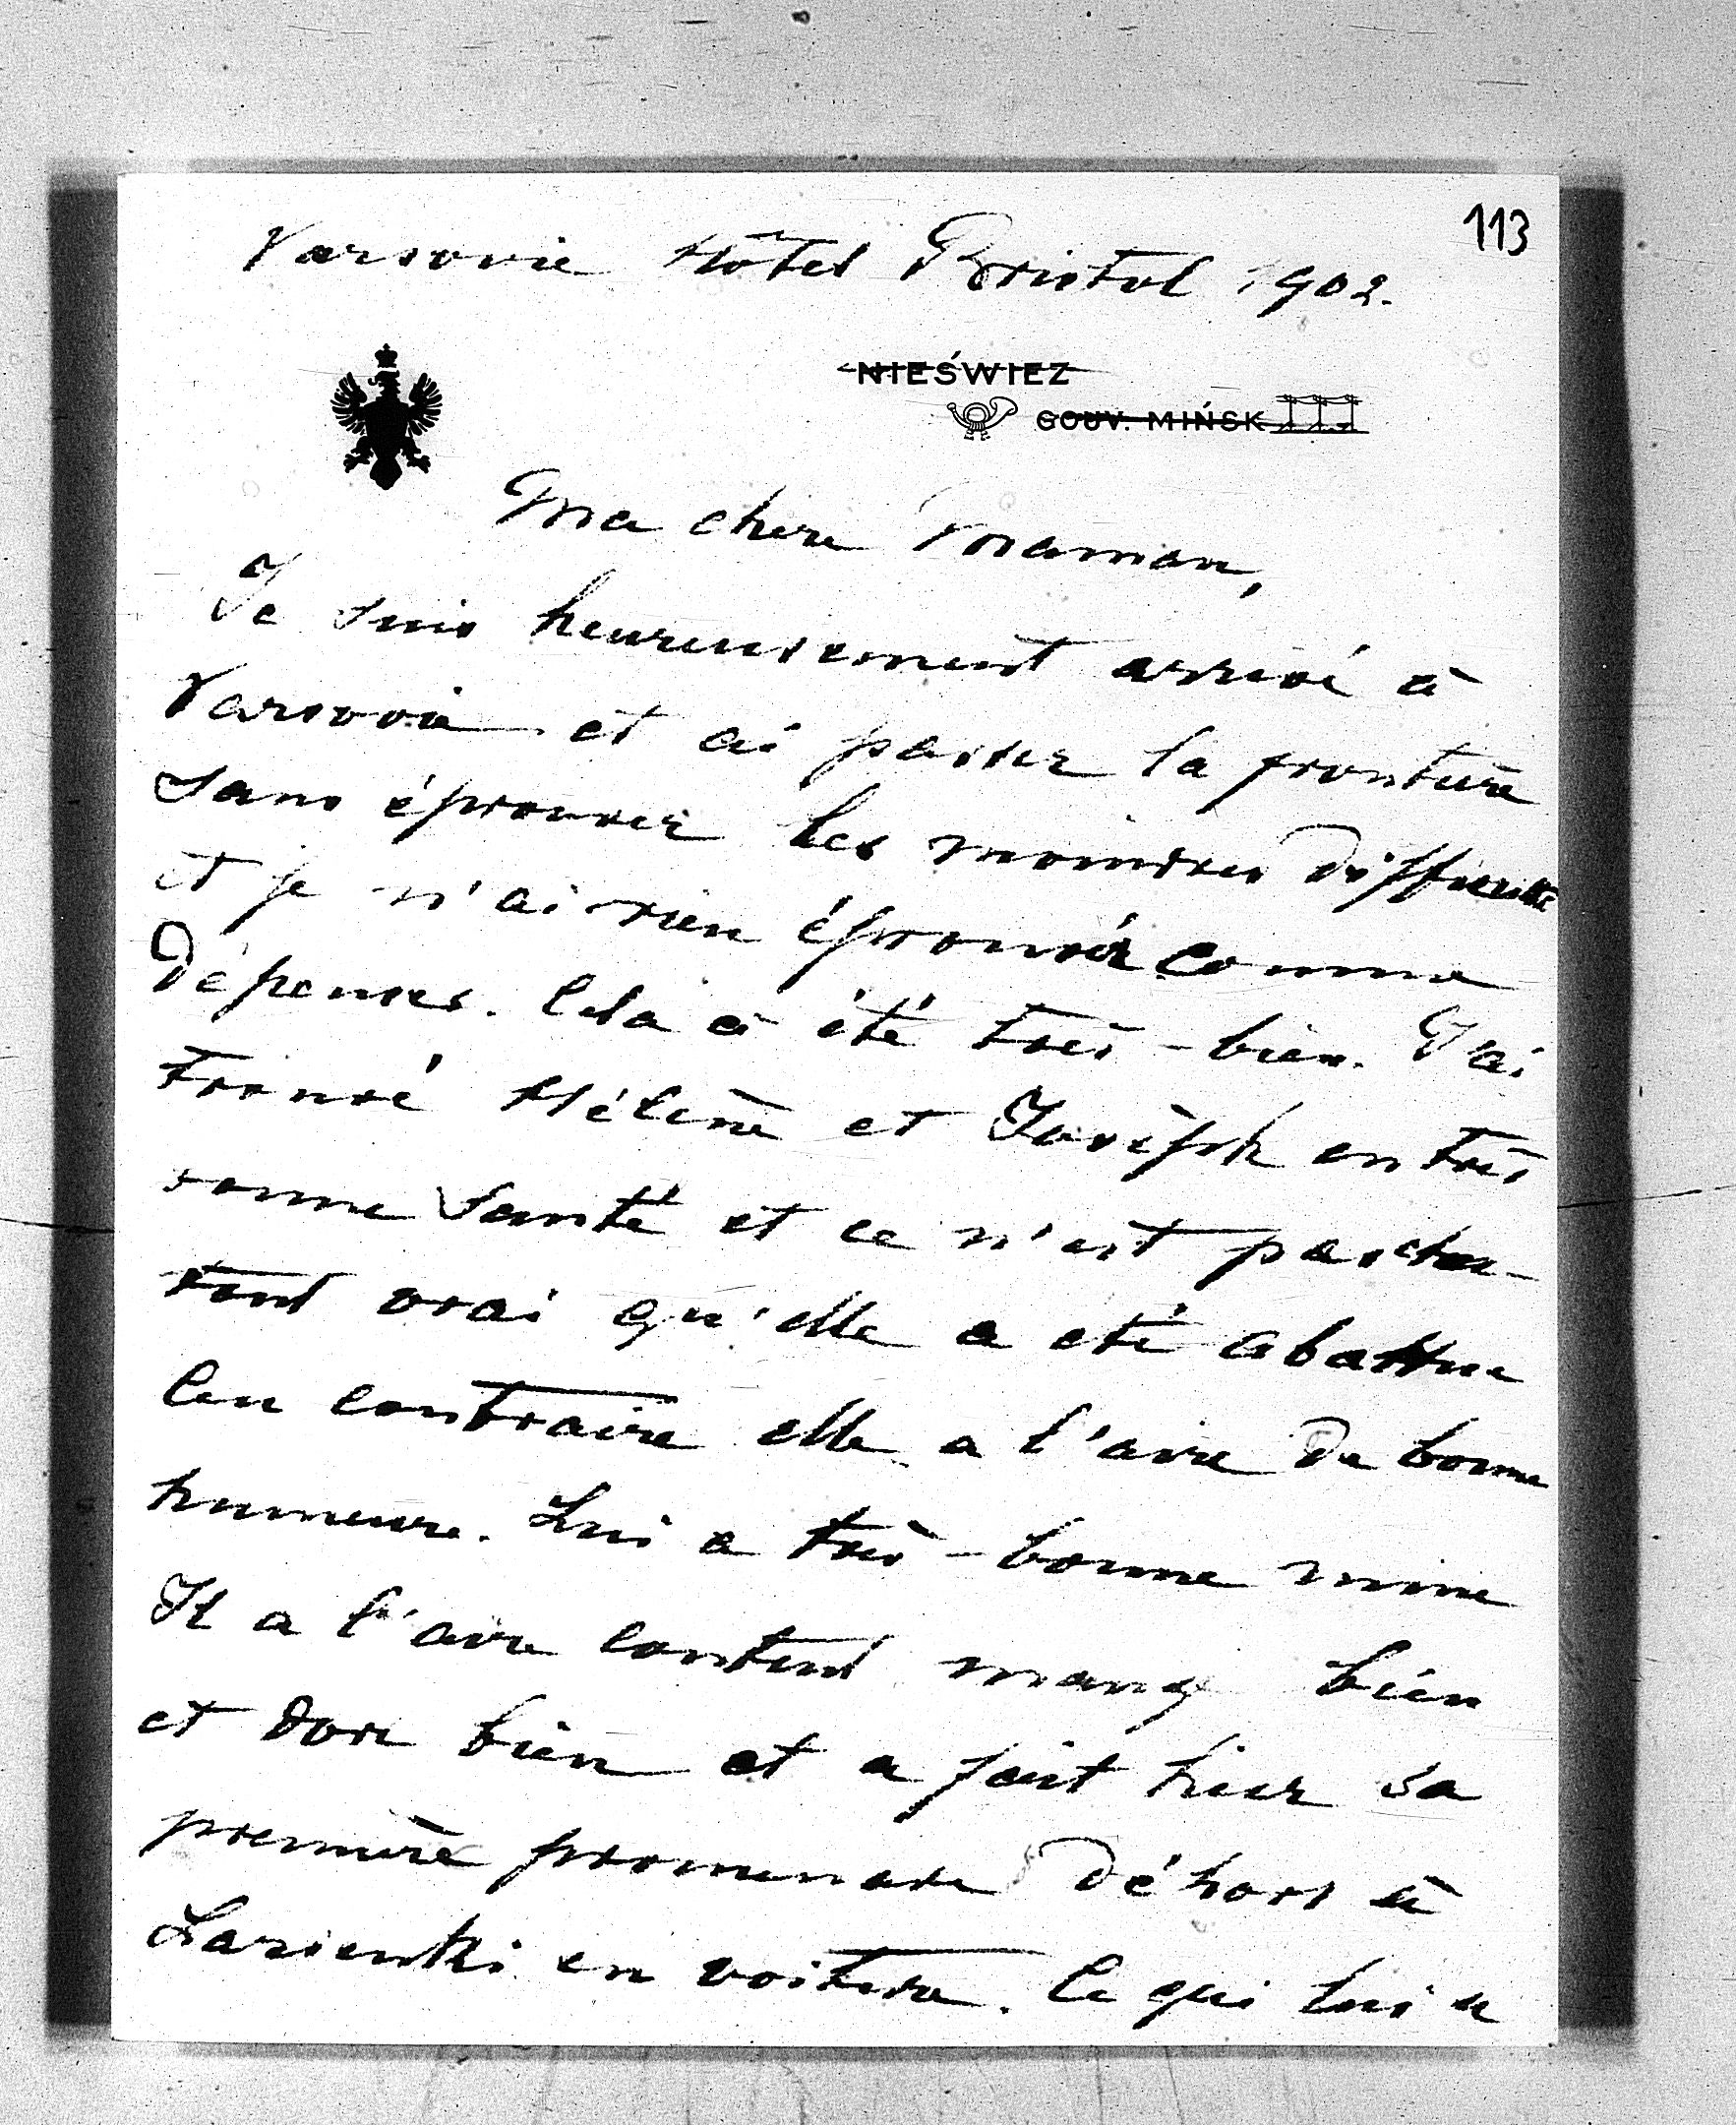 113
Varsovie Hôtel Bristol 1902.
NIEŚWIEZ
GOUV. MIŃSK
Ma chere Maman,
Je suis heureusement arrivé à
Varsovie et ai passer la frontière
sans éprouver les moindres difficulté
et je n'ai rien éprouvér comme
dépenses. Cela à été très-bien. J'ai
trouvé Hélène et Josèph en très
bonne santé et ce n'est pas du
tout vrai qu'elle a eté abattue
au contraire elle a l'aire de bonne
humeure. Lui a très-bonne mine
Il a l'aire content mang bien
et dors bien et a fait hier sa
première promenade déhors à
Lazienki en voiture. Ce qui lui a